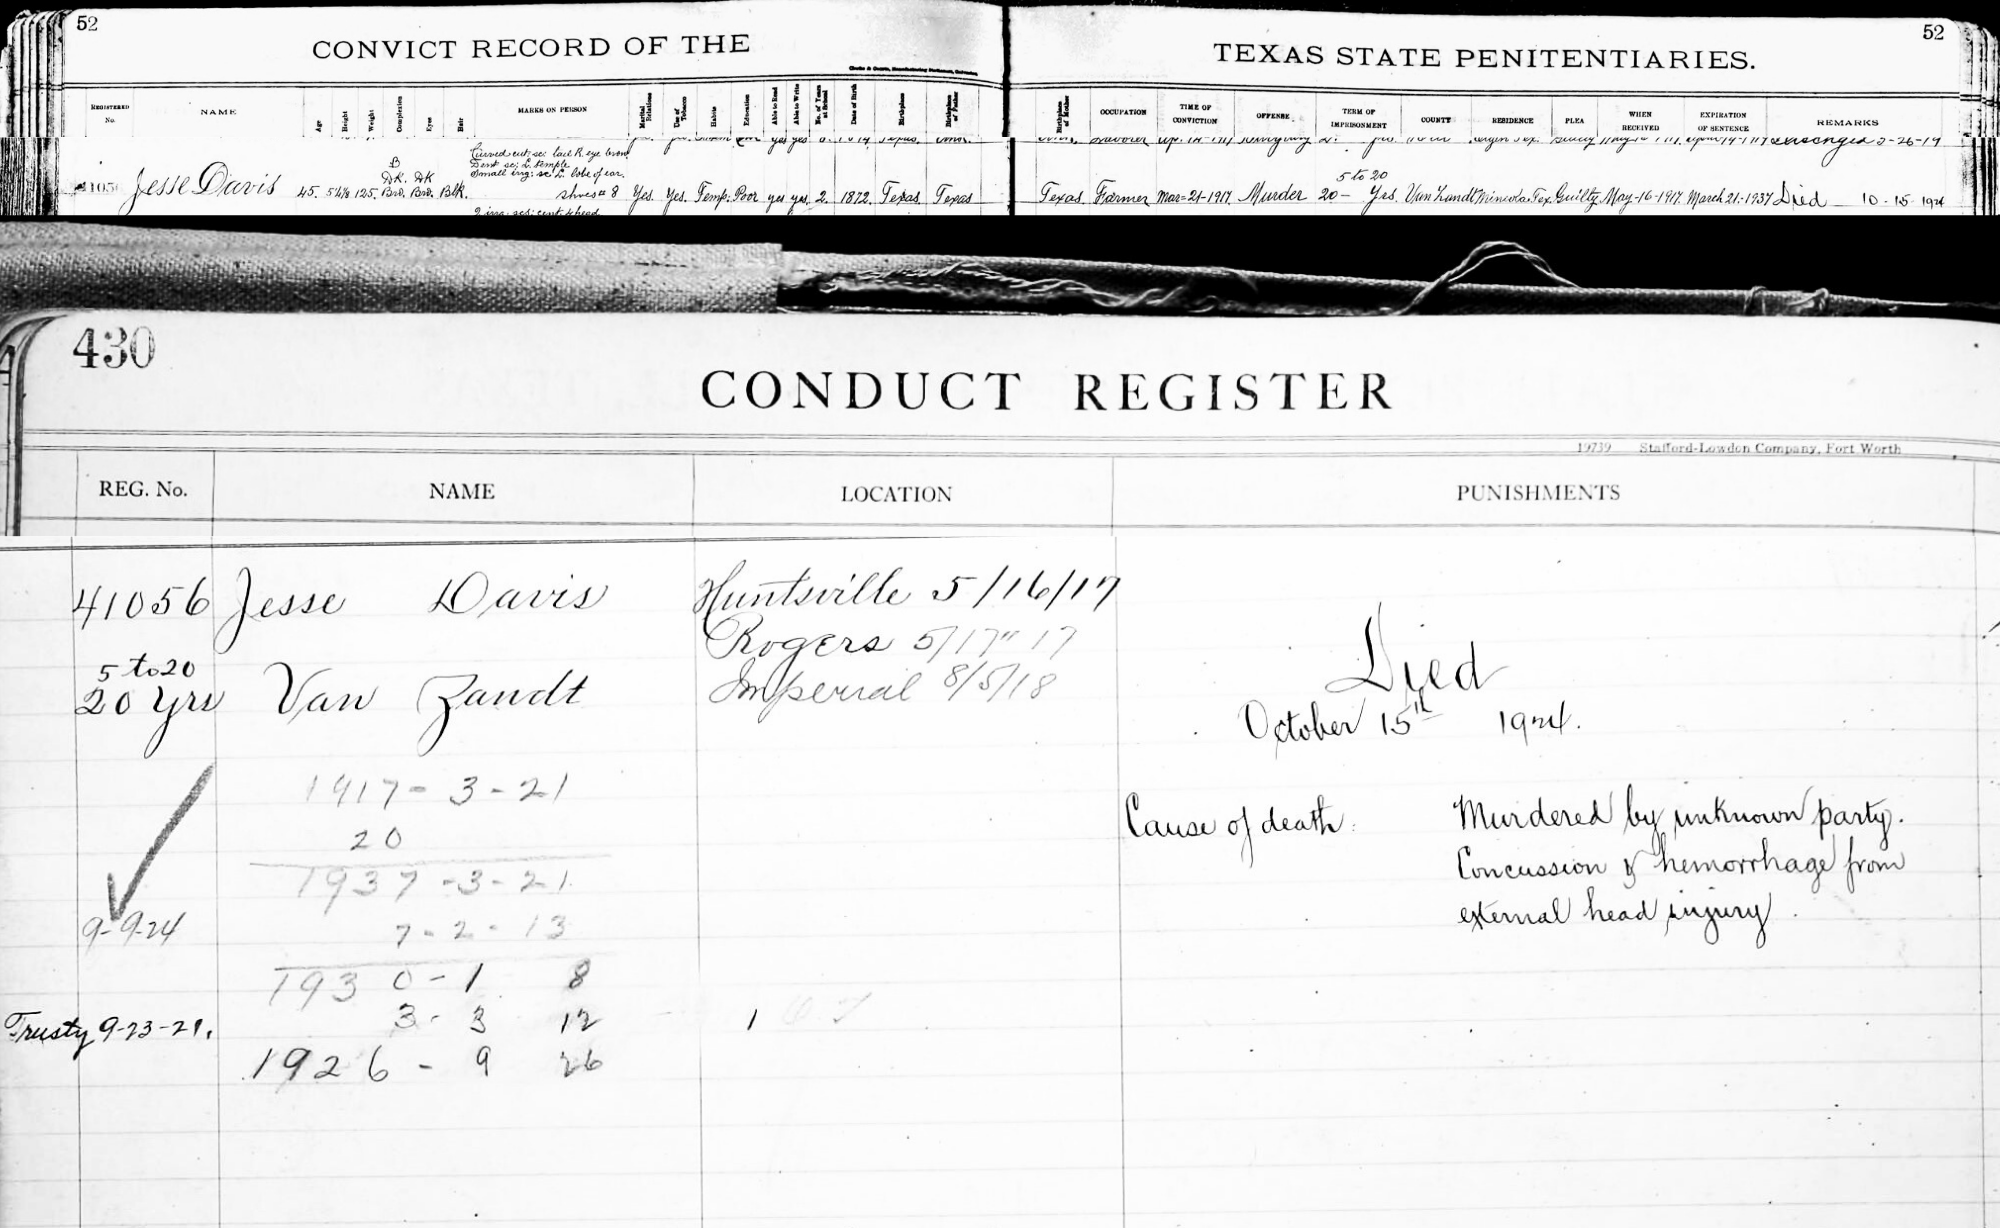 52
52
CONVICT RECORD OF THE
TEXAS STATE PENITENTIARIES.
REGISTERED No. NAME Age Height Weight Complexion Eyes Hair MARKS ON PERSON Marital Relations Use of Tobacco Habits Education Able to Read Able to Write No. of Years at School Date of Birth Birthplace Birthplace of Father Birthplace of Mother OCCUPATION TIME OF CONVICTION OFFENSE TERM OF IMPRISONMENT COUNTY RESIDENCE PLEA WHEN RECEIVED EXPIRATION OF SENTENCE REMARKS
2-26-19
Curved cut sc: back R. eye brow
B Dent sc: L. temple
DK. DK Small irg: sc L. lobe of ear.
shoes # 8
5 to 20
Jesse Davis 45. 125. Bro. Bro. Blk. Yes. Yes. Temp. Poor yes yes. 2. 1872. Texas Texas Texas Farmer Mar-21-1917. Murder 20- Yrs. Van Zandt Mineola Tex. Guilty May-16-1917. March 21-1937 Died 10-15-1924
430
CONDUCT REGISTER
19739 Stafford-Lowdon Company, Fort Worth
REG. No. NAME LOCATION PUNISHMENTS
41056 Jesse Davis Huntsville 5/16/17
Rogers 5/17" 17
5 to 20
20 Yrs Van Zandt Imperial 8/5/18
Died
October 15th 1924.
1917-3-21
20
Cause of death: Murdered by unknown party.
1937-3-21
Concussion & hemorrhage from
9-9-24
7-2-13
external head injury.
1930-1 8
Trusty 9-23-21.
3-3 12
1
1926-9 26